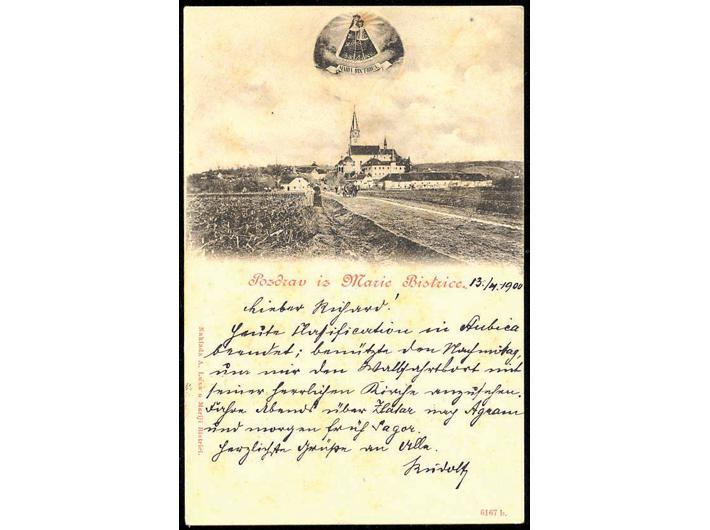 MARIA BISTRICA
Pozdrav iz Marie Bistrice. 13./4. 1900
Lieber Richard!
Heute Klasification in Stubica
beendet; benützte den Nachmittag,
um mir den Wallfahrtsort mit
seiner herrlichen Kirche anzusehen.
Fahre Abends über Zlatar nach Agram
und morgen früh Sagor.
Herzlichste Grüße an Alle.
Rudolf
Naklada A. u Mariji Bistrici.
6167 b.